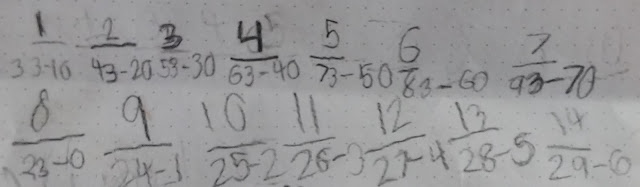 1 2 3 4 5 6 7
33-10 43-20 53-30 63-40 73-50 83-60 93-70
8 9 10 11 12 13 14
23-0 24-1 25-2 26-3 27-4 28-5 29-6